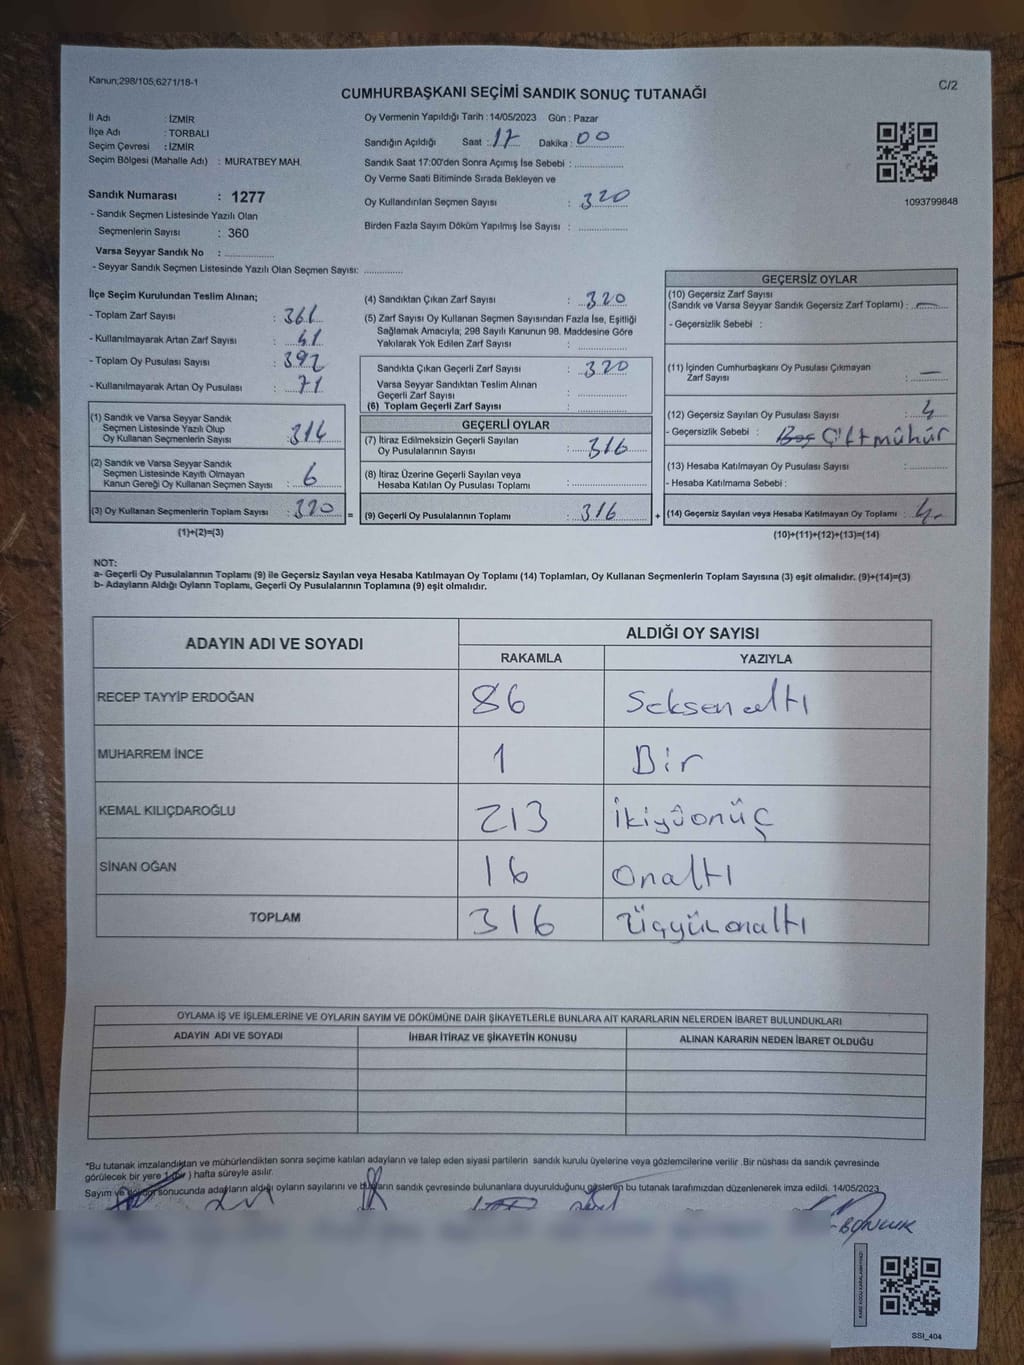 Kanun;298/105,6271/18-1
C/2
CUMHURBAŞKANI SEÇİMİ SANDIK SONUÇ TUTANAĞI
İl Adı : İZMİR
İlçe Adı : TORBALI
Seçim Çevresi : İZMİR
Seçim Bölgesi (Mahalle Adı) : MURATBEY MAH.
Sandık Numarası : 1277
- Sandık Seçmen Listesinde Yazılı Olan
Seçmenlerin Sayısı : 360
Varsa Seyyar Sandık No : ...............
- Seyyar Sandık Seçmen Listesinde Yazılı Olan Seçmen Sayısı: ............
Oy Vermenin Yapıldığı Tarih : 14/05/2023 Gün : Pazar
Sandığın Açıldığı Saat : 17 Dakika : 00
Sandık Saat 17:00'den Sonra Açımış İse Sebebi : ...............
Oy Verme Saati Bitiminde Sırada Bekleyen ve
Oy Kullandırılan Seçmen Sayısı : 320
Birden Fazla Sayım Döküm Yapılmış İse Sayısı : ...............
1093799848
İlçe Seçim Kurulundan Teslim Alınan;
- Toplam Zarf Sayısı : 361
- Kullanılmayarak Artan Zarf Sayısı : 41
- Toplam Oy Pusulası Sayısı : 392
- Kullanılmayarak Artan Oy Pusulası : 71
(1) Sandık ve Varsa Seyyar Sandık
Seçmen Listesinde Yazılı Olup
Oy Kullanan Seçmenlerin Sayısı : 314
(2) Sandık ve Varsa Seyyar Sandık
Seçmen Listesinde Kayıtlı Olmayan
Kanun Gereği Oy Kullanan Seçmen Sayısı : 6
(3) Oy Kullanan Seçmenlerin Toplam Sayısı : 320 =
(1)+(2)=(3)
(4) Sandıktan Çıkan Zarf Sayısı : 320
(5) Zarf Sayısı Oy Kullanan Seçmen Sayısından Fazla İse, Eşitliği
Sağlamak Amacıyla; 298 Sayılı Kanunun 98. Maddesine Göre
Yakılarak Yok Edilen Zarf Sayısı : ...............
Sandıkta Çıkan Geçerli Zarf Sayısı : 320
Varsa Seyyar Sandıktan Teslim Alınan
Geçerli Zarf Sayısı : ...............
(6) Toplam Geçerli Zarf Sayısı : ...............
GEÇERLİ OYLAR
(7) İtiraz Edilmeksizin Geçerli Sayılan
Oy Pusulalarının Sayısı : 316
(8) İtiraz Üzerine Geçerli Sayılan veya
Hesaba Katılan Oy Pusulası Toplamı : ...............
(9) Geçerli Oy Pusulalarının Toplamı : 316 +
GEÇERSİZ OYLAR
(10) Geçersiz Zarf Sayısı
(Sandık ve Varsa Seyyar Sandık Geçersiz Zarf Toplamı) : —
- Geçersizlik Sebebi :
(11) İçinden Cumhurbaşkanı Oy Pusulası Çıkmayan
Zarf Sayısı : —
(12) Geçersiz Sayılan Oy Pusulası Sayısı : 4
- Geçersizlik Sebebi : Boş Çift mühür
(13) Hesaba Katılmayan Oy Pusulası Sayısı : ...............
- Hesaba Katılmama Sebebi :
(14) Geçersiz Sayılan veya Hesaba Katılmayan Oy Toplamı : 4-
(10)+(11)+(12)+(13)=(14)
NOT:
a- Geçerli Oy Pusulalarının Toplamı (9) ile Geçersiz Sayılan veya Hesaba Katılmayan Oy Toplamı (14) Toplamları, Oy Kullanan Seçmenlerin Toplam Sayısına (3) eşit olmalıdır. (9)+(14)=(3)
b- Adayların Aldığı Oyların Toplamı, Geçerli Oy Pusulalarının Toplamına (9) eşit olmalıdır.
ADAYIN ADI VE SOYADI
ALDIĞI OY SAYISI
RAKAMLA YAZIYLA
RECEP TAYYİP ERDOĞAN 86 Seksenaltı
MUHARREM İNCE 1 Bir
KEMAL KILIÇDAROĞLU 213 İkiyüonüç
SİNAN OĞAN 16 Onaltı
TOPLAM 316 Üçyüzonaltı
OYLAMA İŞ VE İŞLEMLERİNE VE OYLARIN SAYIM VE DÖKÜMÜNE DAİR ŞİKAYETLERLE BUNLARA AİT KARARLARIN NELERDEN İBARET BULUNDUKLARI
ADAYIN ADI VE SOYADI İHBAR İTİRAZ VE ŞİKAYETİN KONUSU ALINAN KARARIN NEDEN İBARET OLDUĞU
*Bu tutanak imzalandıktan ve mühürlendikten sonra seçime katılan adayların ve talep eden siyasi partilerin sandık kurulu üyelerine veya gözlemcilerine verilir .Bir nüshası da sandık çevresinde
görülecek bir yere 1 (bir ) hafta süreyle asılır.
Sayım ve döküm sonucunda adayların aldığı oyların sayılarını ve bunların sandık çevresinde bulunanlara duyurulduğunu gösteren bu tutanak tarafımızdan düzenlenerek imza edildi. 14/05/2023
BONCUK
SSI_404